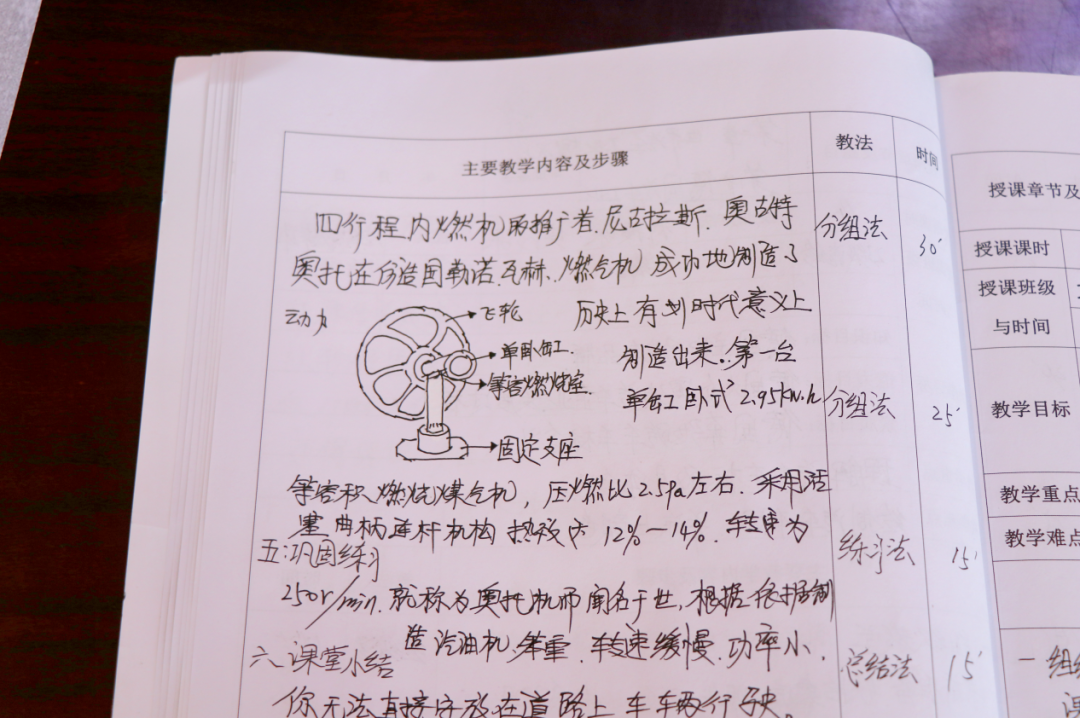 主要教学内容及步骤 教法 时间
四行程内燃机的推广者.尼古拉斯.奥古特 分组法 30'
奥托在仿造因勒诺.瓦赫.燃气机成功地制造了
动力 飞轮 历史上有划时代意义上
单卧缸. 制造出来.第一台
等容燃烧室. 单缸卧式2.95kw.h 分组法 25'
固定支座
等容积燃烧煤气机,压燃比2.5Pa左右.采用活
塞曲柄连杆机构热效为12%—14%.转速为
五:巩固练习 练习法 15'
250r/min.就称为奥托机而闻名于世,根据依据制
造汽油机.笨重.转速缓慢.功率小.
六.课堂小结 总结法 15'
你无法直接安放在道路上车车辆行驶。
授课章节及
授课课时
授课班级
与时间
教学目标
教学重点
教学难点
一 组织